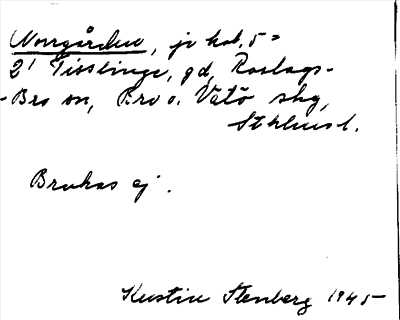 Norrgården, jr kab. 5 =
2¹ Tisslinge, gd, Roslags-
-Bro sn, Bro o. Vätö skg,
Sthlms l.
Brukas ej.
Kerstin Stenberg 1945